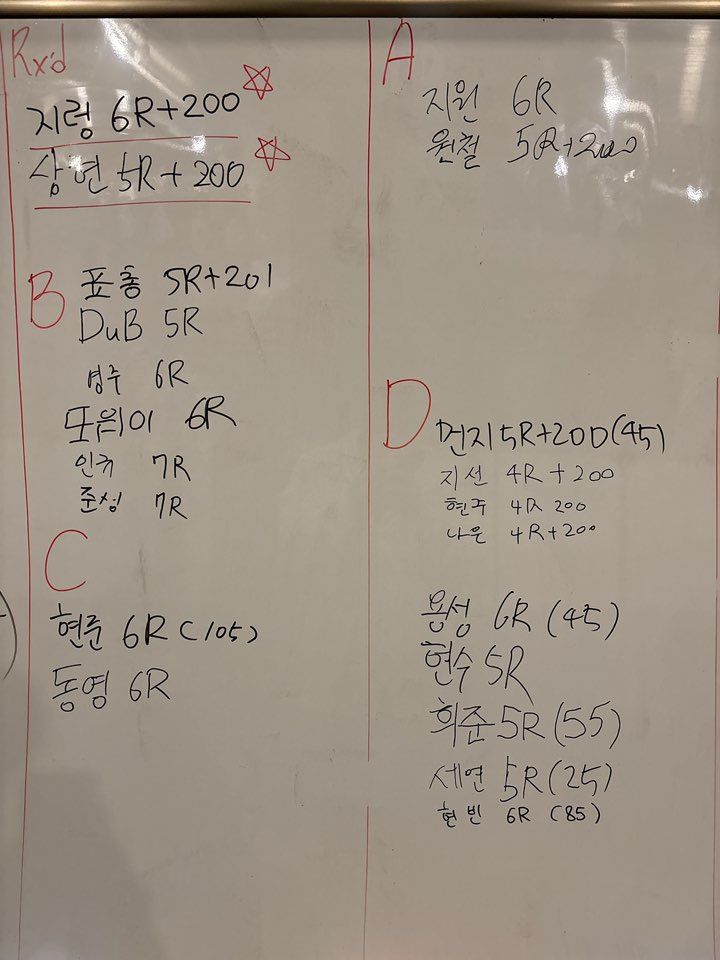 Rx'd
지렁 6R+200
상현 5R+200
B
표총 5R+201
DuB 5R
영주 6R
또위이 6R
인규 7R
준성 7R
C
현준 6R (105)
동영 6R
A
지원 6R
원철 5R+200
D
먼지 5R+200 (45)
지선 4R+200
현주 4R 200
나운 4R+200
용성 6R (45)
현수 5R
희준 5R (55)
세연 5R (25)
현빈 6R (85)